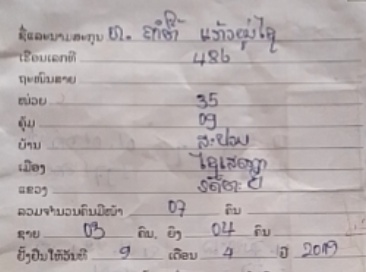 ຊື່ແລະນາມສະກຸນ ທ. ຄຳຫຼ້າ
ເຮືອນເລກທີ 486
ຖະໜົນສາຍ
ໜ່ວຍ 35
ຄຸ້ມ 09
ບ້ານ ສະປວມ
ເມືອງ ໄຊເສດຖາ
ແຂວງ
ລວມຈຳນວນຄົນມີໜ້າ 07 ຄົນ
ຊາຍ 03 ຄົນ, ຍິງ 04 ຄົນ
ຢັ້ງຢືນໃຫ້ວັນທີ 9 ເດືອນ 4 ປີ 2019